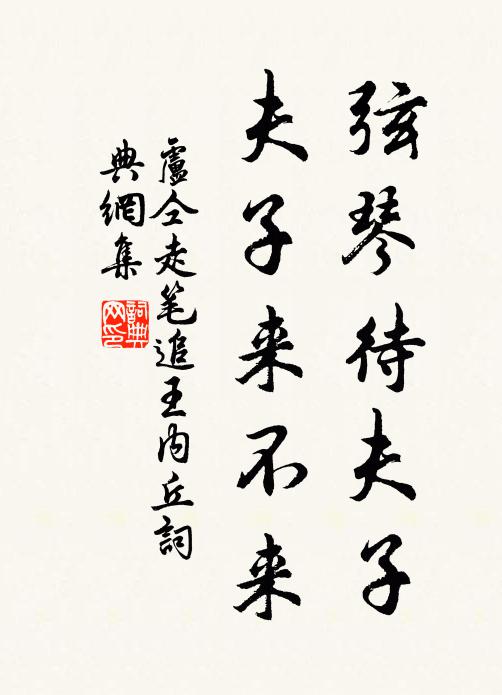 弦琴待夫子
夫子来不来
盧仝走笔追王内丘詞
典網集
詞典
网印